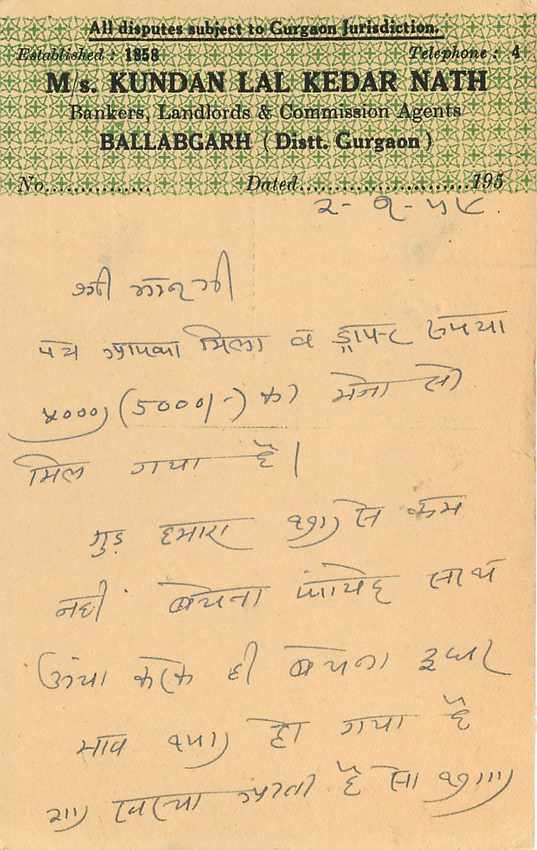 All disputes subject to Gurgaon Jurisdiction.
Established : 1858 Telephone : 4
M/s. KUNDAN LAL KEDAR NATH
Bankers, Landlords & Commission Agents
BALLABGARH (Distt. Gurgaon)
No............... Dated........................195
२-९-५४
श्री
पत्र आपका मिला व ड्राफ्ट रुपया
५०००) (5000/-) का भेजा सो
मिल गया है।
गुड़ हमारा से कम
नहीं बेचना
ऊंचा करके ही बेचना इधर
भाव १५।) हो गया है
२॥) खरचा आता है सो